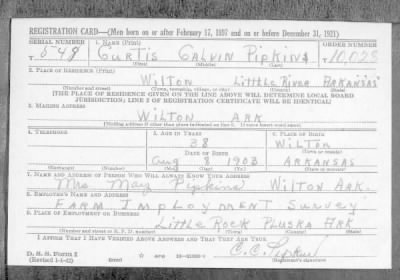 REGISTRATION CARD—(Men born on or after February 17, 1897 and on or before December 31, 1921)
SERIAL NUMBER 1. NAME (Print) ORDER NUMBER
T 548 CURTIS CALVIN PIPKINS 10,028
(First) (Middle) (Last)
2. PLACE OF RESIDENCE (Print)
WILTON LITTLE RIVER ARKANSAS
(Number and street) (Town, township, village, or city) (County) (State)
[THE PLACE OF RESIDENCE GIVEN ON THE LINE ABOVE WILL DETERMINE LOCAL BOARD
JURISDICTION; LINE 2 OF REGISTRATION CERTIFICATE WILL BE IDENTICAL]
3. MAILING ADDRESS
WILTON ARK
[Mailing address if other than place indicated on line 2. If same insert word same]
4. TELEPHONE 5. AGE IN YEARS 6. PLACE OF BIRTH
38 WILTON
DATE OF BIRTH (Town or county)
Aug 8 1903 ARKANSAS
(Exchange) (Number) (Mo.) (Day) (Yr.) (State or country)
7. NAME AND ADDRESS OF PERSON WHO WILL ALWAYS KNOW YOUR ADDRESS
Mrs. May Pipkins WILTON ARK.
8. EMPLOYER'S NAME AND ADDRESS
FARM IMPLOYMENT SURVEY
9. PLACE OF EMPLOYMENT OR BUSINESS
LITTLE ROCK PLUSKA ARK
(Number and street or R. F. D. number) (Town) (County) (State)
I AFFIRM THAT I HAVE VERIFIED ABOVE ANSWERS AND THAT THEY ARE TRUE.
D. S. S. Form 1
(Revised 1-1-42) (over) C. C. Pipkins
(Registrant's signature)